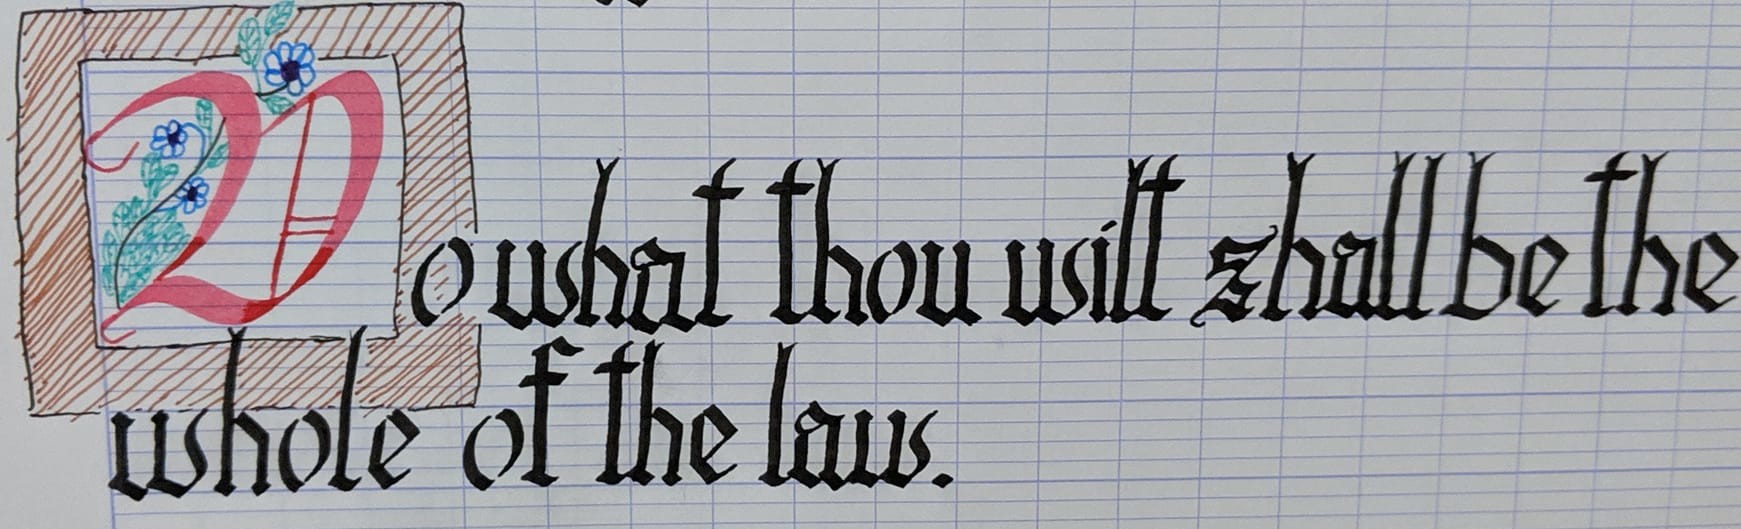 Do what thou wilt shall be the
whole of the law.